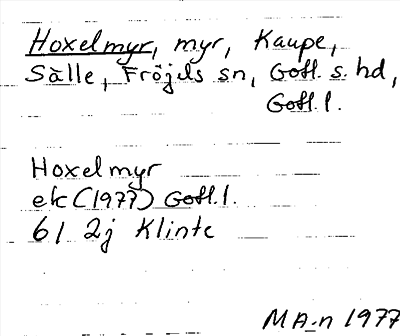 Hoxelmyr, myr, Kaupe,
Sälle, Fröjels sn, Gotl. s. hd,
Gotl. l.
Hoxelmyr
ek (1977) Gotl. l.
6I 2j Klinte
MA-n 1977